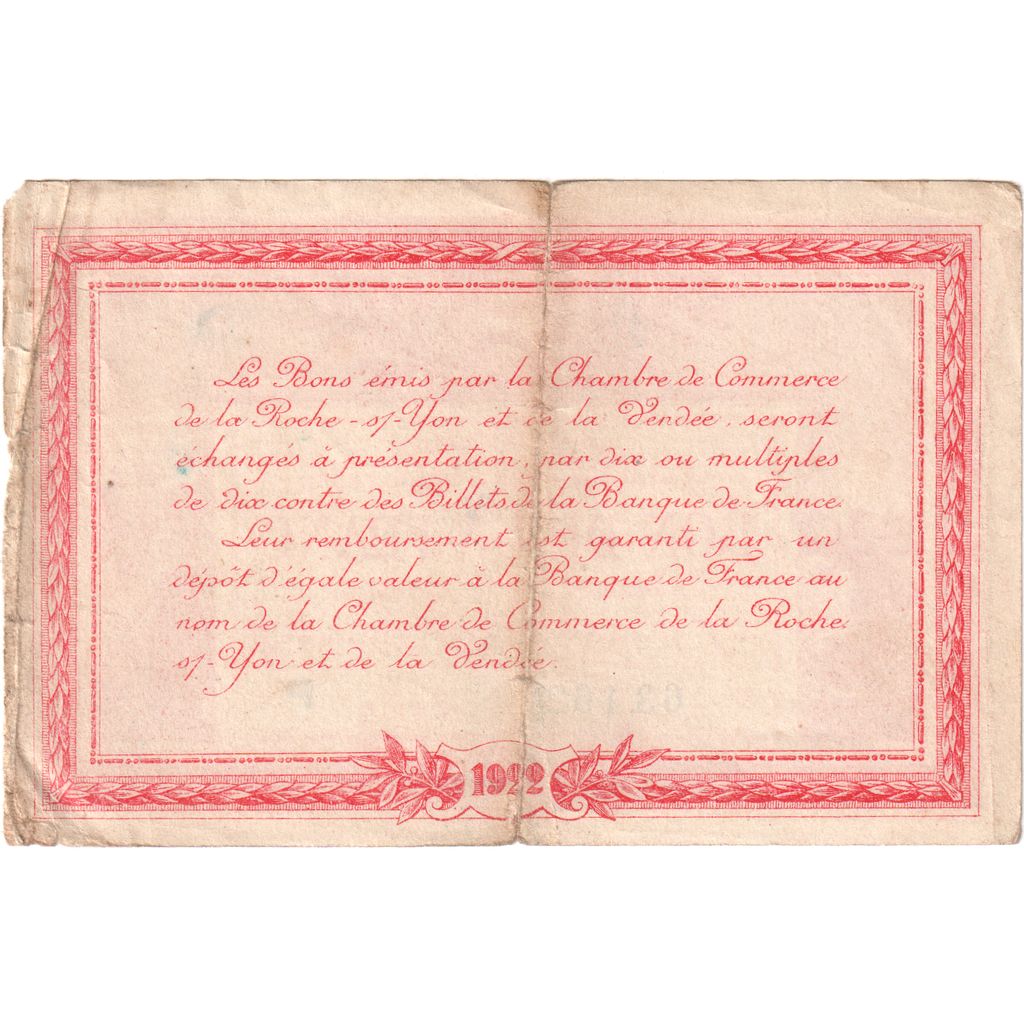 Les Bons émis par la Chambre de Commerce
de la Roche-s/-Yon et de la Vendée, seront
échangés à présentation, par dix ou multiples
de dix contre des Billets de la Banque de France.
Leur remboursement est garanti par un
dépôt d'égale valeur à la Banque de France au
nom de la Chambre de Commerce de la Roche-
s/-Yon et de la Vendée.
1922